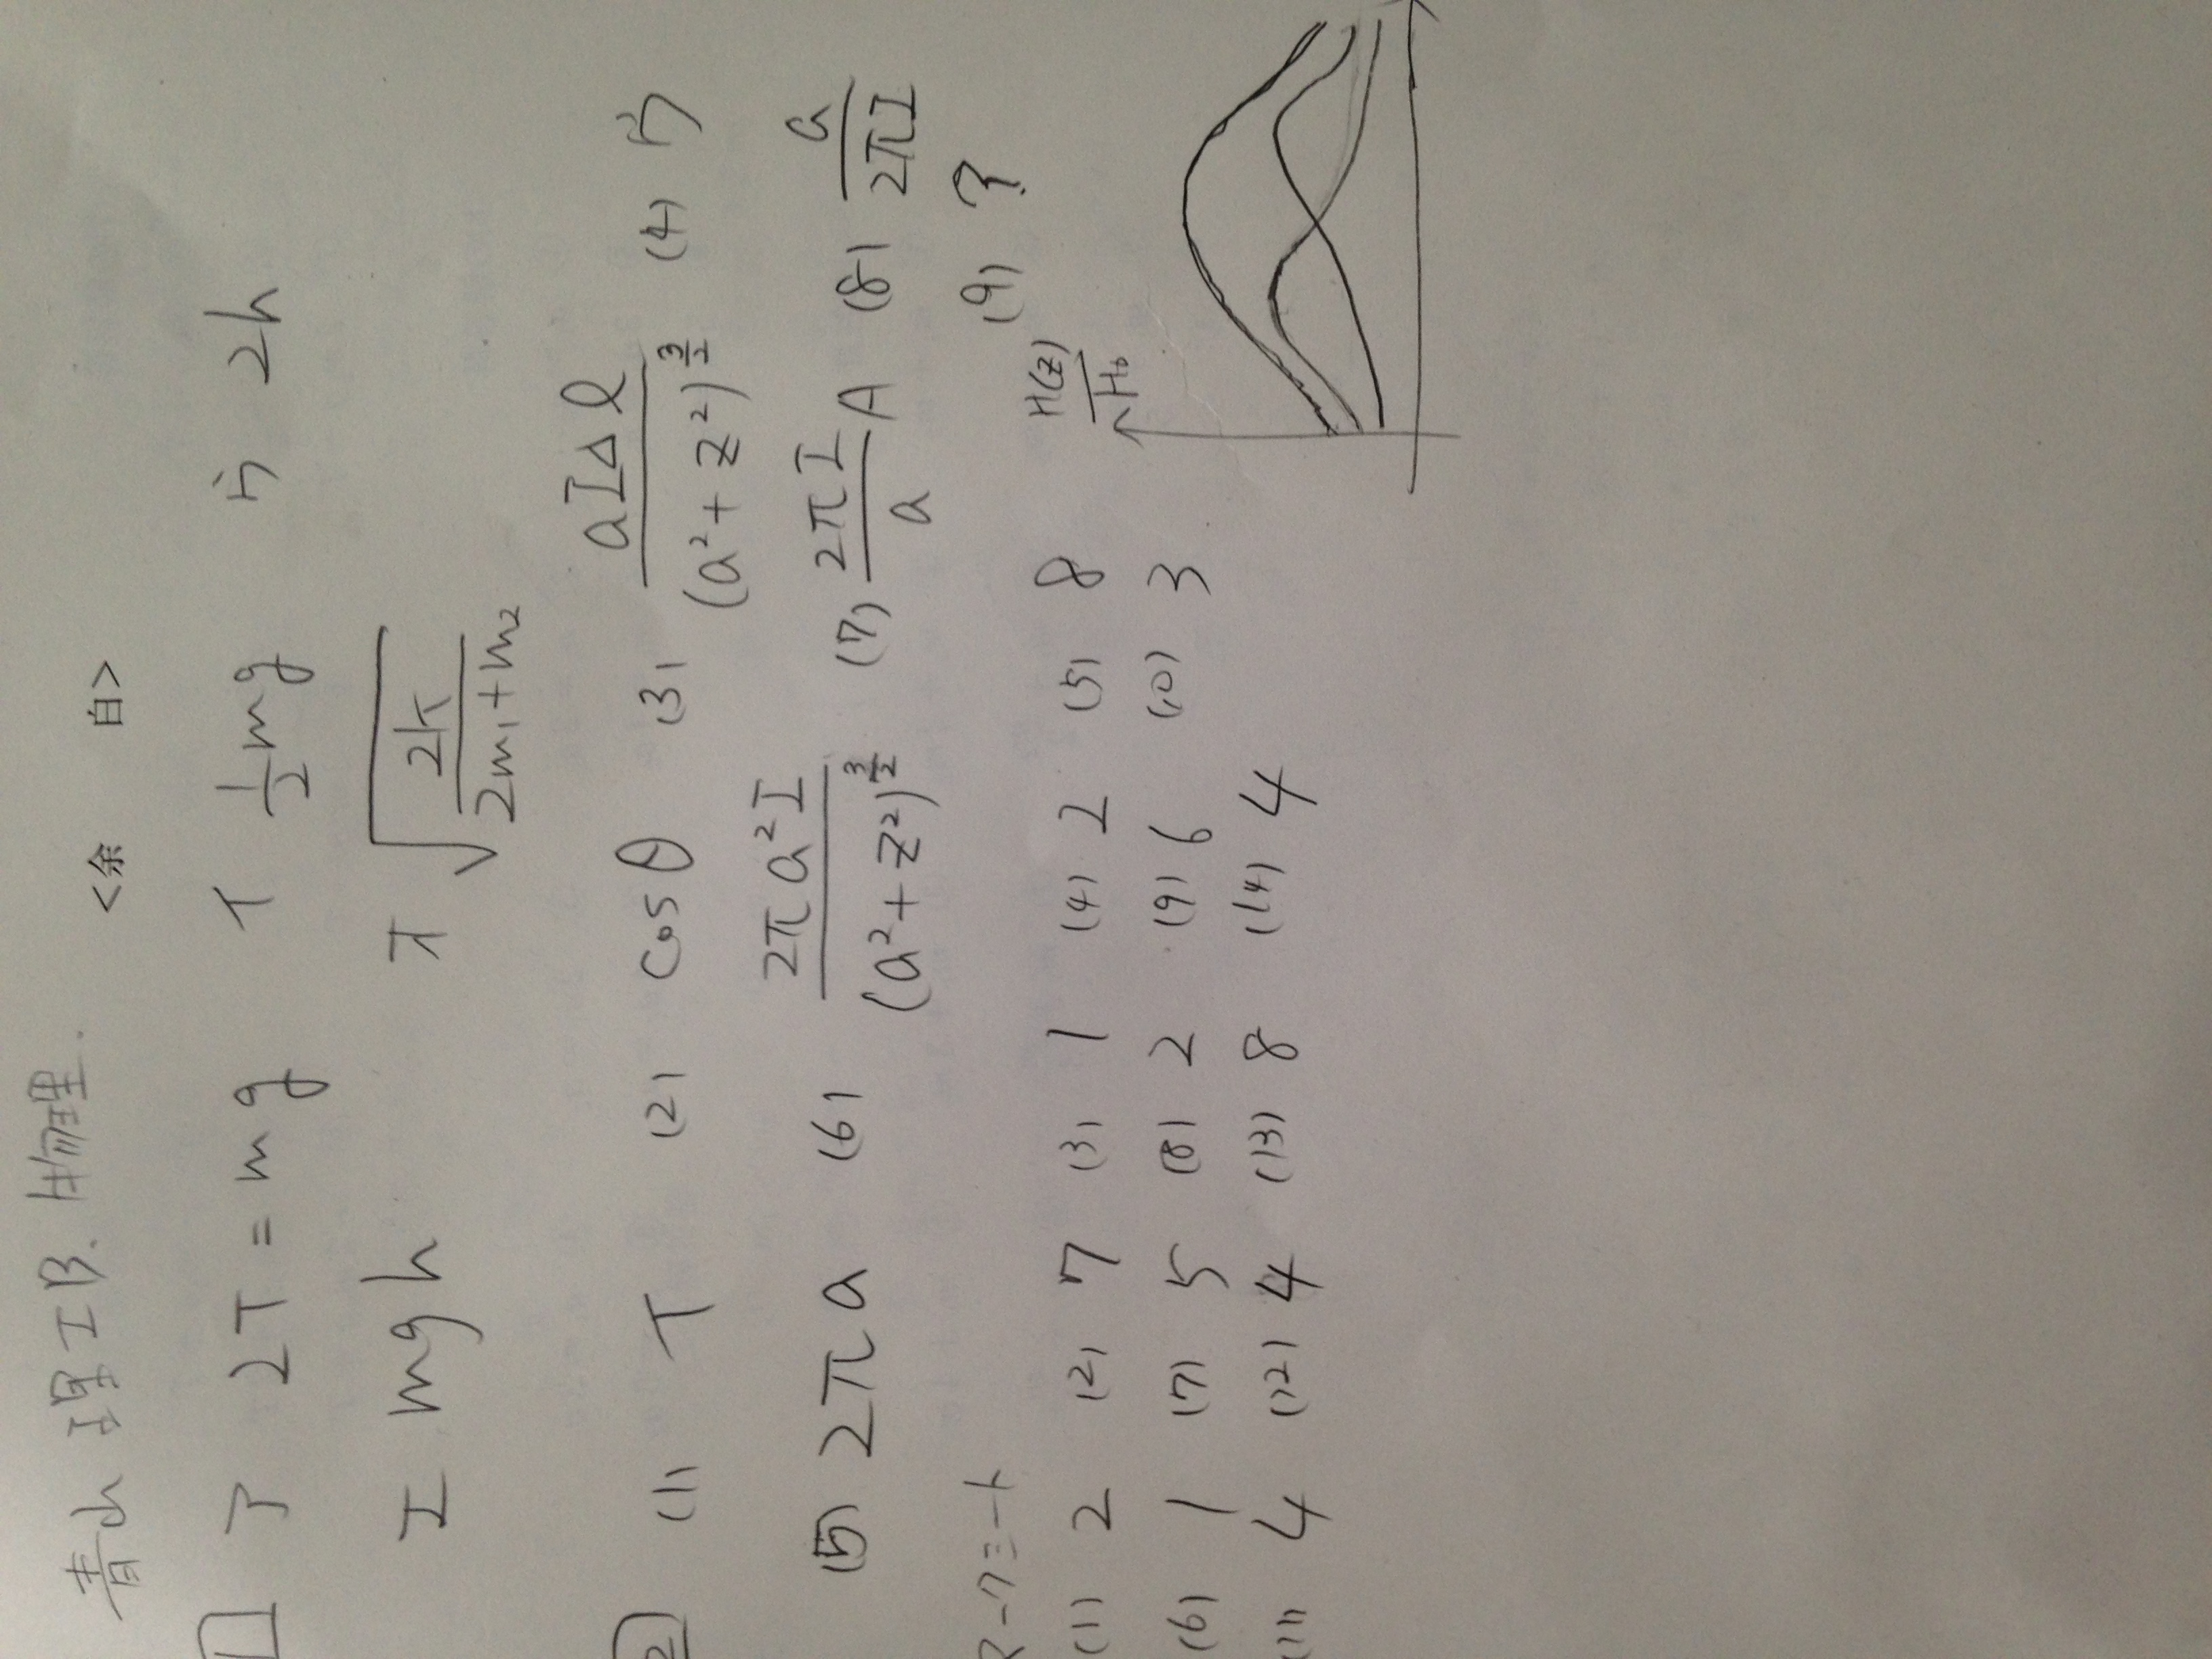 <余 白>
青山 理工B. 物理.
1 ア 2T=mg イ 1/2 mg ウ 2h
エ mgh オ √(2k/(2m₁+m₂))
2 (1) T (2) cosθ (3) aIΔl/(a²+z²)^(3/2) (4) ウ
(5) 2πa (6) 2πa²I/(a²+z²)^(3/2) (7) 2πI/a A (8) a/2πI
(9) ?
マークシート
(1) 2 (2) 7 (3) 1 (4) 2 (5) 8
(6) 1 (7) 5 (8) 2 (9) 6 (10) 3
(11) 4 (12) 4 (13) 8 (14) 4
H(z)/H₀